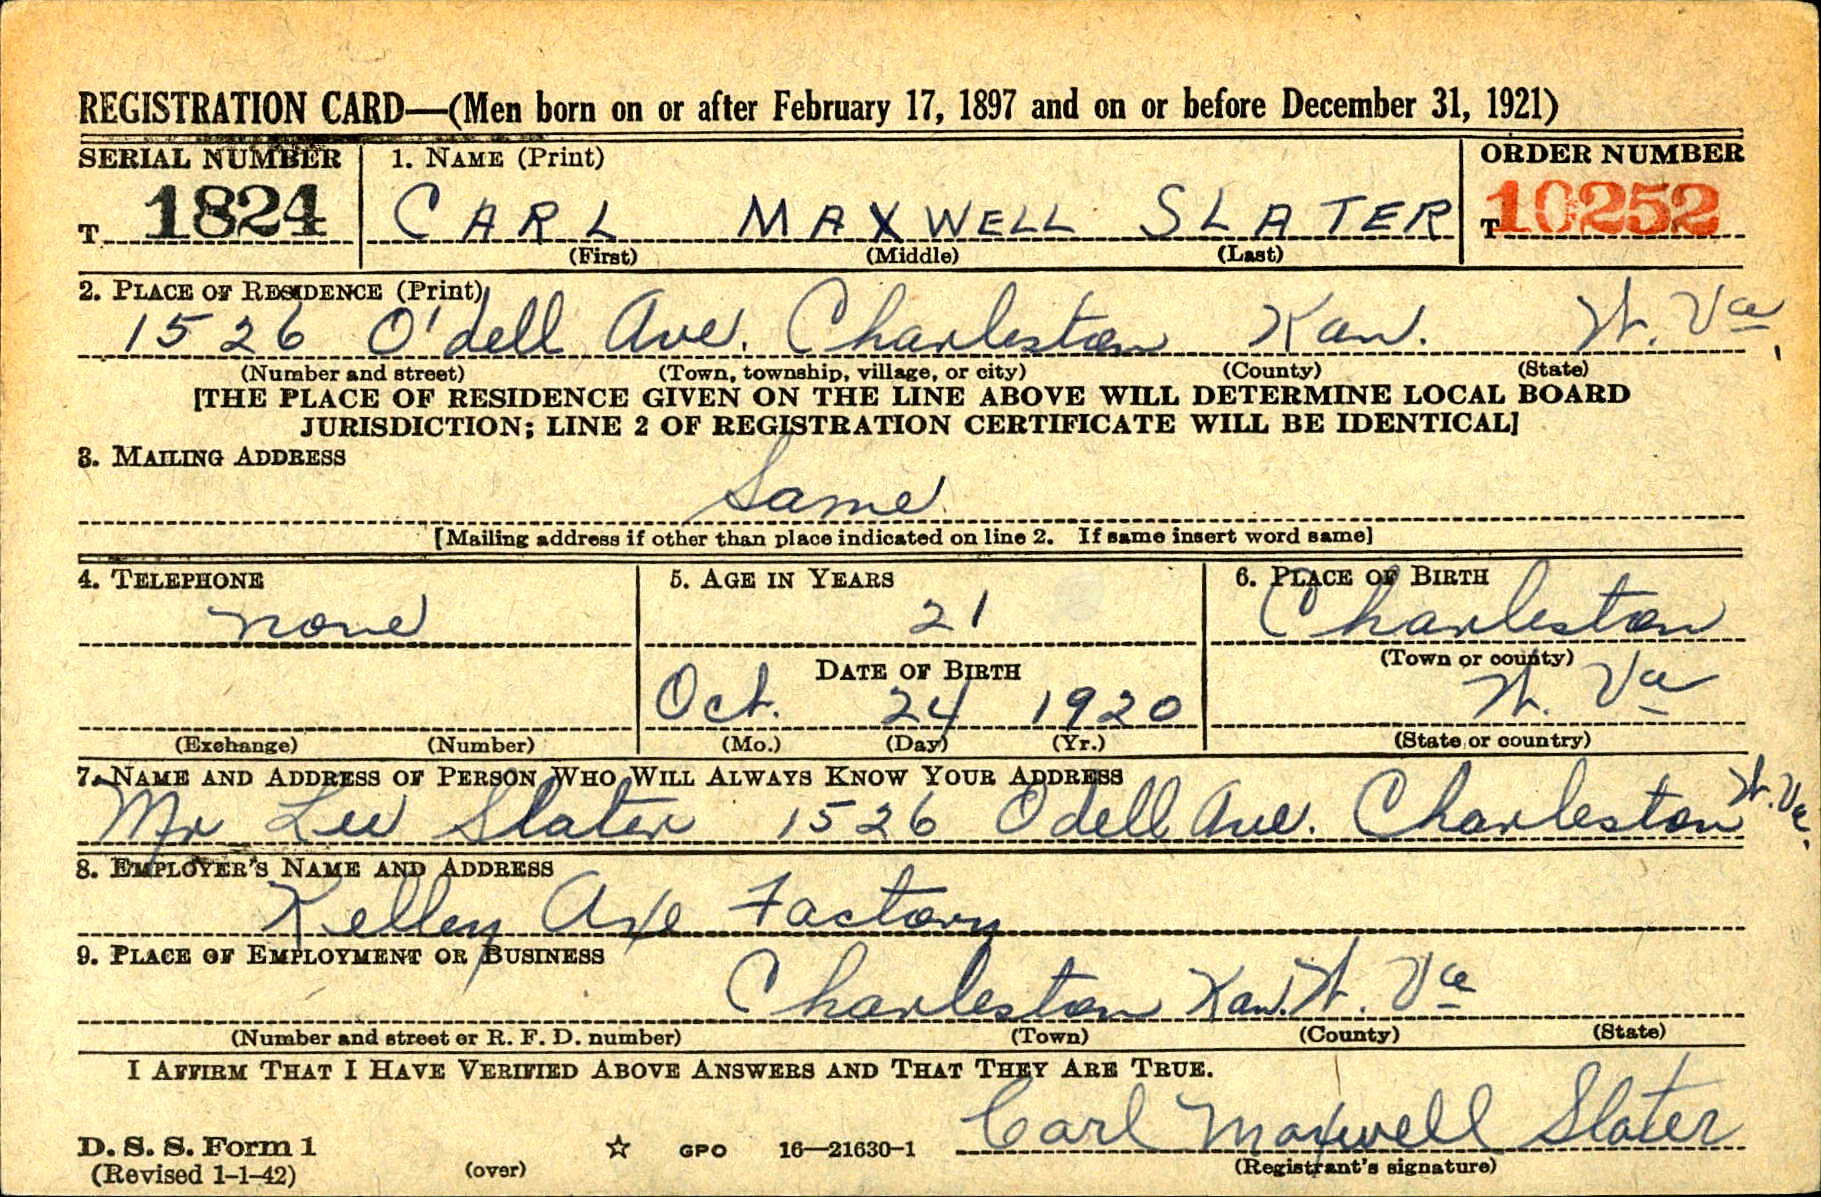 REGISTRATION CARD—(Men born on or after February 17, 1897 and on or before December 31, 1921)
SERIAL NUMBER 1. NAME (Print) ORDER NUMBER
T 1824 CARL MAXWELL SLATER T 10252
(First) (Middle) (Last)
2. PLACE OF RESIDENCE (Print)
1526 O'dell Ave. Charleston Kan. W. Va.
(Number and street) (Town, township, village, or city) (County) (State)
[THE PLACE OF RESIDENCE GIVEN ON THE LINE ABOVE WILL DETERMINE LOCAL BOARD
JURISDICTION; LINE 2 OF REGISTRATION CERTIFICATE WILL BE IDENTICAL]
3. MAILING ADDRESS
Same
[Mailing address if other than place indicated on line 2. If same insert word same]
4. TELEPHONE 5. AGE IN YEARS 6. PLACE OF BIRTH
none 21 Charleston
DATE OF BIRTH (Town or county)
Oct. 24 1920 W. Va
(Exchange) (Number) (Mo.) (Day) (Yr.) (State or country)
7. NAME AND ADDRESS OF PERSON WHO WILL ALWAYS KNOW YOUR ADDRESS
Mr Lee Slater 1526 Odell Ave. Charleston W. Va.
8. EMPLOYER'S NAME AND ADDRESS
Kelley Axe Factory
9. PLACE OF EMPLOYMENT OR BUSINESS
Charleston Kan. W. Va
(Number and street or R. F. D. number) (Town) (County) (State)
I AFFIRM THAT I HAVE VERIFIED ABOVE ANSWERS AND THAT THEY ARE TRUE.
Carl Maxwell Slater
D. S. S. Form 1 ☆ GPO 16—21630-1
(Revised 1-1-42) (over) (Registrant's signature)